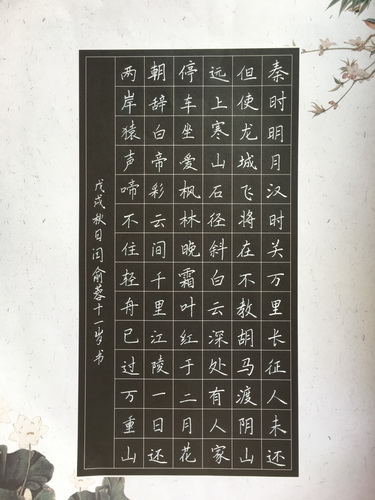 秦时明月汉时关万里长征人未还
但使龙城飞将在不教胡马渡阴山
远上寒山石径斜白云深处有人家
停车坐爱枫林晚霜叶红于二月花
朝辞白帝彩云间千里江陵一日还
两岸猿声啼不住轻舟已过万重山
戊戌秋日闫俞蓉十一岁书